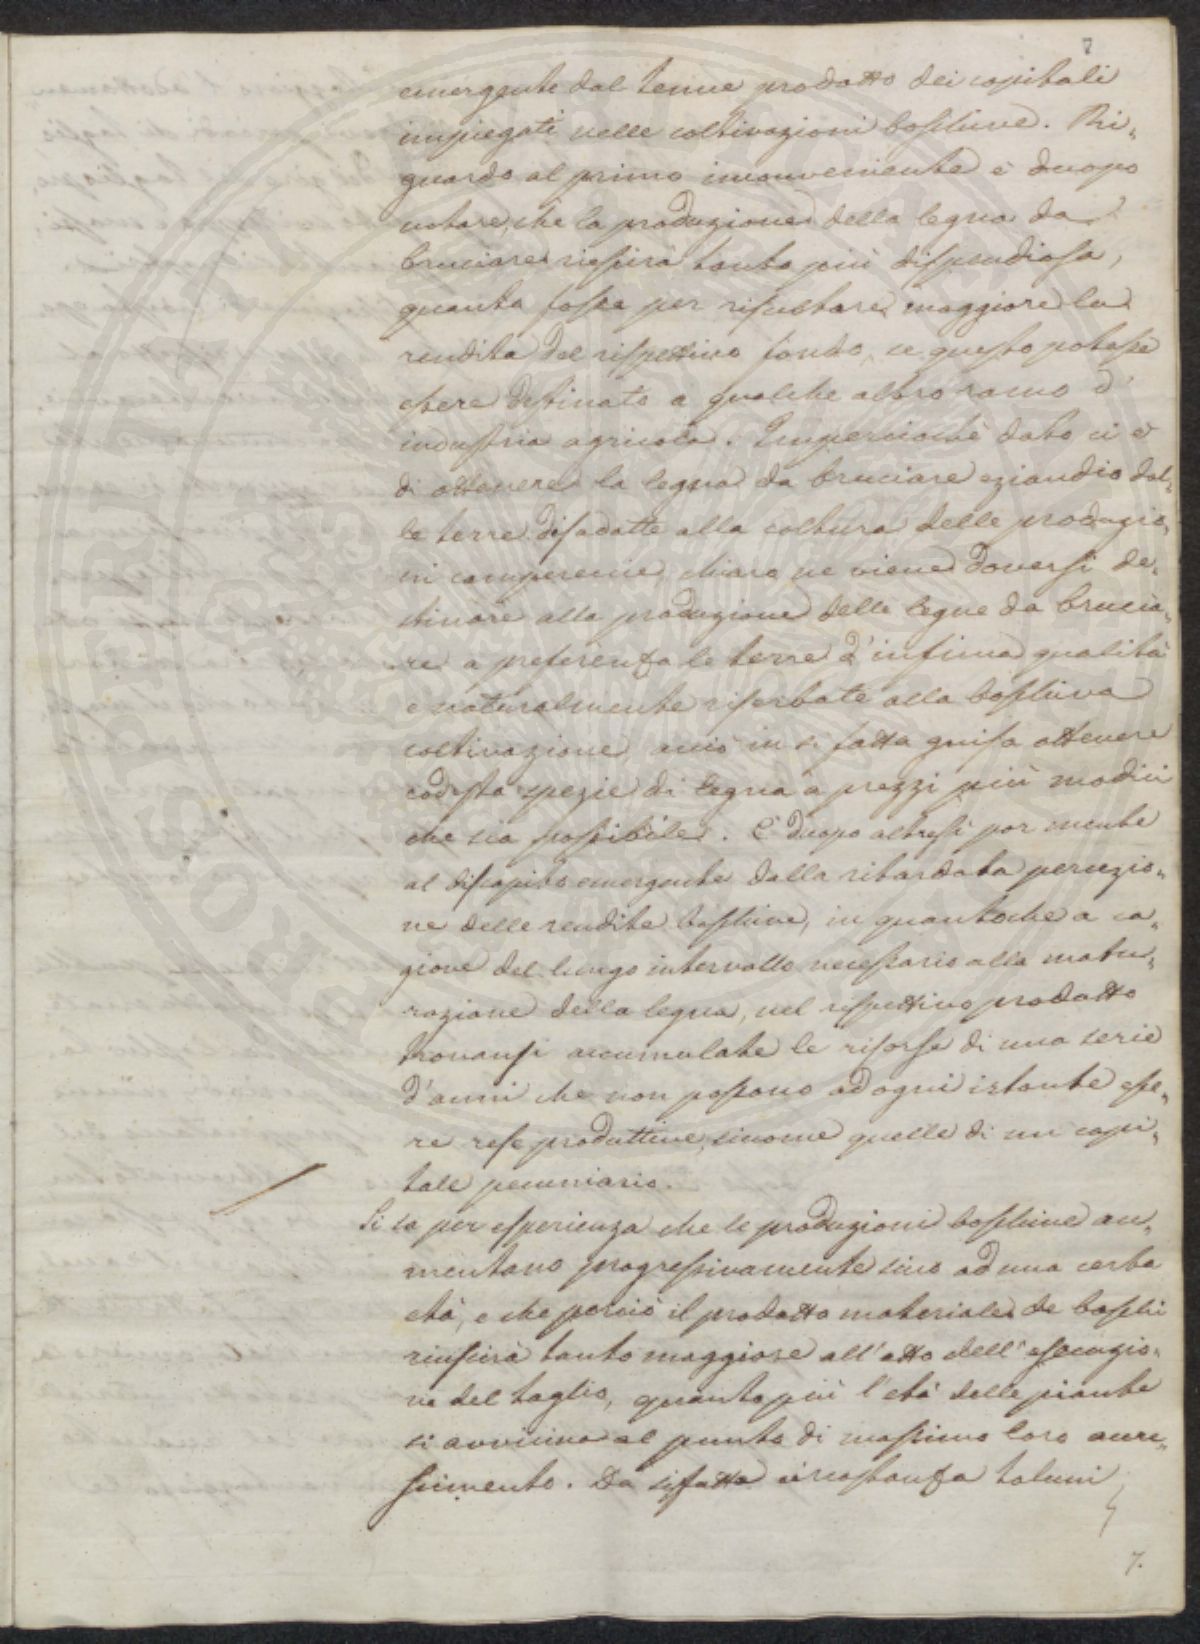 7
emergente dal tenue prodotto dei capitali
impiegati nelle coltivazioni boschive. Ri„
guardo al primo inconveniente è duopo
notare, che la produzione della legna da
bruciare riescirà tanto più dispendiosa,
quanta fosse per risultare maggiore la
rendita del rispettivo fondo, se questo potesse
essere destinato a qualche altro ramo d'
industria agricola. Imperciochè dato ci è
di ottenere la legna da bruciare eziandio dal„
le terre disadatte alla coltura delle produzio„
ni camperecie, chiaro ne viene doversi de„
stinare alla produzione delle legne da brucia„
re a preferenza le terre d'infima qualità
e naturalmente riserbate alla boschiva
coltivazione, anciò in si fatta guisa ottenere
codesta spezie di legna a prezzi più modici
che sia possibile. È duopo altresì por mente
al discapito emergente dalla ritardata percezio„
ne delle rendite boschive, in quantoche a ca„
gione del lungo intervallo necessario alla matu„
razione della legna, nel rispettivo prodotto
trovansi accumulate le risorse di una serie
d'anni che non possono ad ogni istante esse„
re rese produttive, siccome quelle di un capi„
tale pecuniario.
Si sa per esperienza che le produzioni boschive au„
mentano progressivamente sino ad una certa
età, e che perciò il prodotto materiale de boschi
riuscirà tanto maggiore all'atto dell'esecuzio„
ne del taglio, quanto più l'età delle piante
si avvicina al punto di massimo loro accre„
scimento. Da sifatta circostanza taluni
7.
PROSPERITATI PUBLICAE